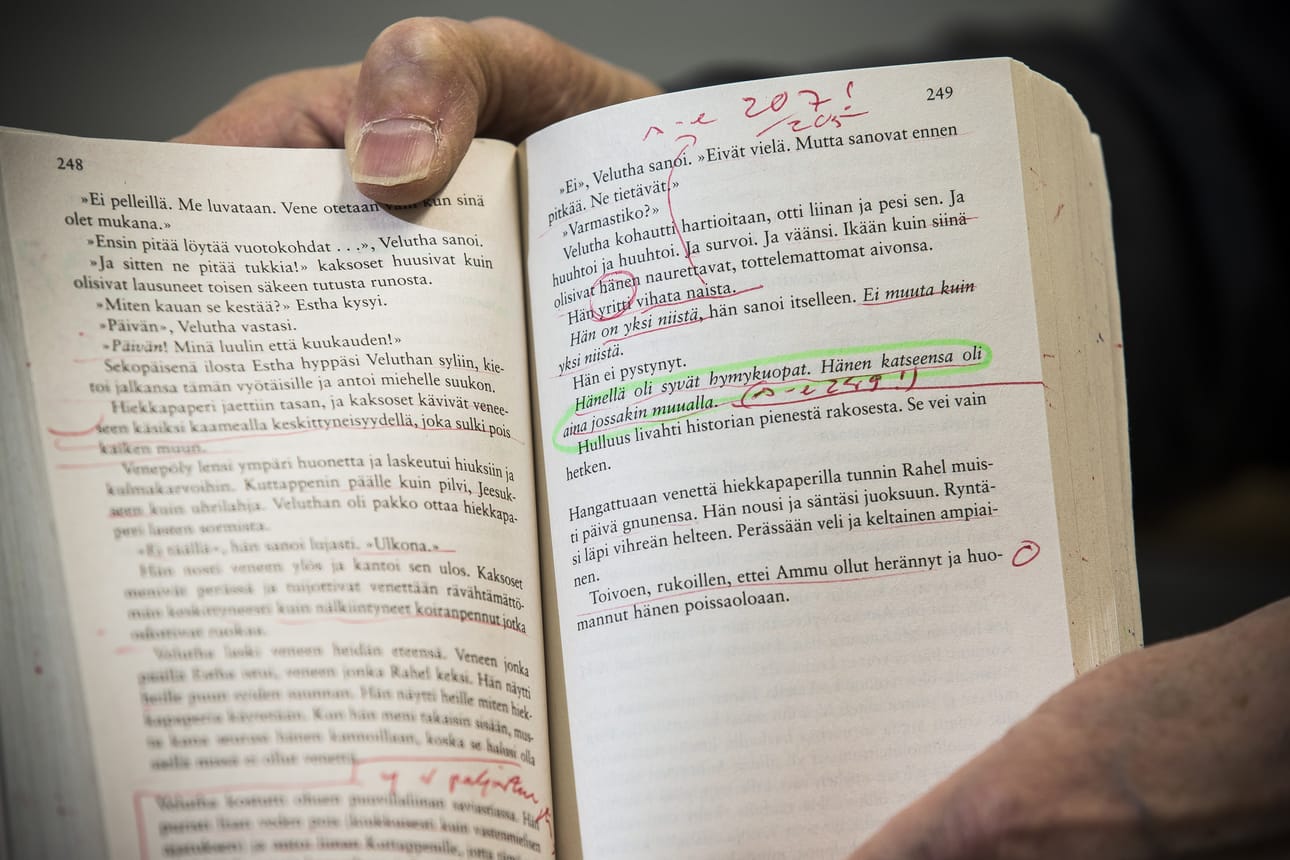 248
»Ei pelleillä. Me luvataan. Vene otetaan vain kun sinä
olet mukana.»
»Ensin pitää löytää vuotokohdat . . .», Velutha sanoi.
»Ja sitten ne pitää tukkia!» kaksoset huusivat kuin
olisivat lausuneet toisen säkeen tutusta runosta.
»Miten kauan se kestää?» Estha kysyi.
»Päivän», Velutha vastasi.
»Päivän! Minä luulin että kuukauden!»
Sekopäisenä ilosta Estha hyppäsi Veluthan syliin, kie-
toi jalkansa tämän vyötäisille ja antoi miehelle suukon.
Hiekkapaperi jaettiin tasan, ja kaksoset kävivät venee-
seen käsiksi kaamealla keskittyneisyydellä, joka sulki pois
kaiken muun.
Venepöly lensi ympäri huonetta ja laskeutui hiuksiin ja
kulmakarvoihin. Kuttappenin päälle kuin pilvi, Jeesuk-
seen kuin uhrilahja. Veluthan oli pakko ottaa hiekkapa-
peri lasten sormista.
»Ei täällä», hän sanoi lujasti. »Ulkona.»
Hän nosti veneen ylös ja kantoi sen ulos. Kaksoset
menivät perässä ja tuijottivat venettään rävähtämättö-
män keskittyneesti kuin nälkiintyneet koiranpennut jotka
odottivat ruokaa.
Velutha laski veneen heidän eteensä. Veneen jonka
päällä Estha istui, veneen jonka Rahel keksi. Hän näytti
heille puun syiden suunnan. Hän näytti heille miten hiek-
kapaperia käytetään. Kun hän meni takaisin sisään, mus-
ta kana seurasi hänen kannoillaan, koska se halusi olla
siellä missä ei ollut venettä.
Velutha kostutti ohuen puuvillaliinan saviastiassa. Hän
249
s-e 207!
205
»Ei», Velutha sanoi. »Eivät vielä. Mutta sanovat ennen
pitkää. Ne tietävät.»
»Varmastiko?»
Velutha kohautti hartioitaan, otti liinan ja pesi sen. Ja
huuhtoi ja huuhtoi. Ja survoi. Ja väänsi. Ikään kuin siinä
olisivat hänen naurettavat, tottelemattomat aivonsa.
Hän yritti vihata naista.
Hän on yksi niistä, hän sanoi itselleen. Ei muuta kuin
yksi niistä.
Hän ei pystynyt.
Hänellä oli syvät hymykuopat. Hänen katseensa oli
aina jossakin muualla. (s-e 249!)
Hulluus livahti historian pienestä rakosesta. Se vei vain
hetken.
Hangattuaan venettä hiekkapaperilla tunnin Rahel muis-
ti päivä gnunensa. Hän nousi ja säntäsi juoksuun. Ryntä-
si läpi vihreän helteen. Perässään veli ja keltainen ampiai-
nen.
Toivoen, rukoillen, ettei Ammu ollut herännyt ja huo-
mannut hänen poissaoloaan.